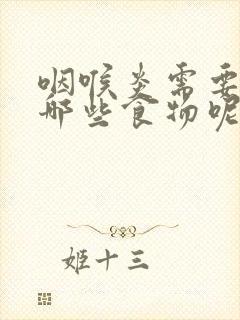 咽喉炎需要
那些食物呢
姬十三